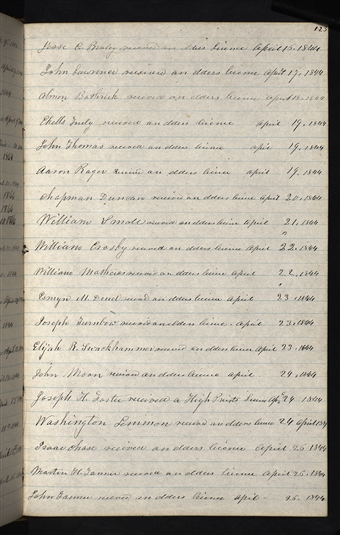 123
Jesse C Braley received an elders license April 15. 1844
John Lawrence received an elders license April 17. 1844
Almon Bathrick received an elders license April 18. 1844
Phelps received an elders license April 19. 1844
John Thomas received an elders license April 19. 1844
Aaron Rager received an elders license April 19. 1844
Chapman Duncan received an elders license April 20. 1844
William Small received an elders license April 21. 1844
William Crosby received an elders license April 22. 1844
William Mathews received an elders license April 22. 1844
M. Deuel received an elders license April 23. 1844
Joseph Turnbow received an elders license. April 23. 1844
Elijah R. Swackhammer received an elders license April 23. 1844
John Moon received an elders license April 24. 1844
Joseph H. Foster received a High Priests License Apl 24 1844
Washington Lemmon received an elders license 24 April 1844
Isaac Chase received an elders license April 25. 1844
Martin H. Tanner received an elders license April 25. 1844
John Tanner received an elders license April 25. 1844